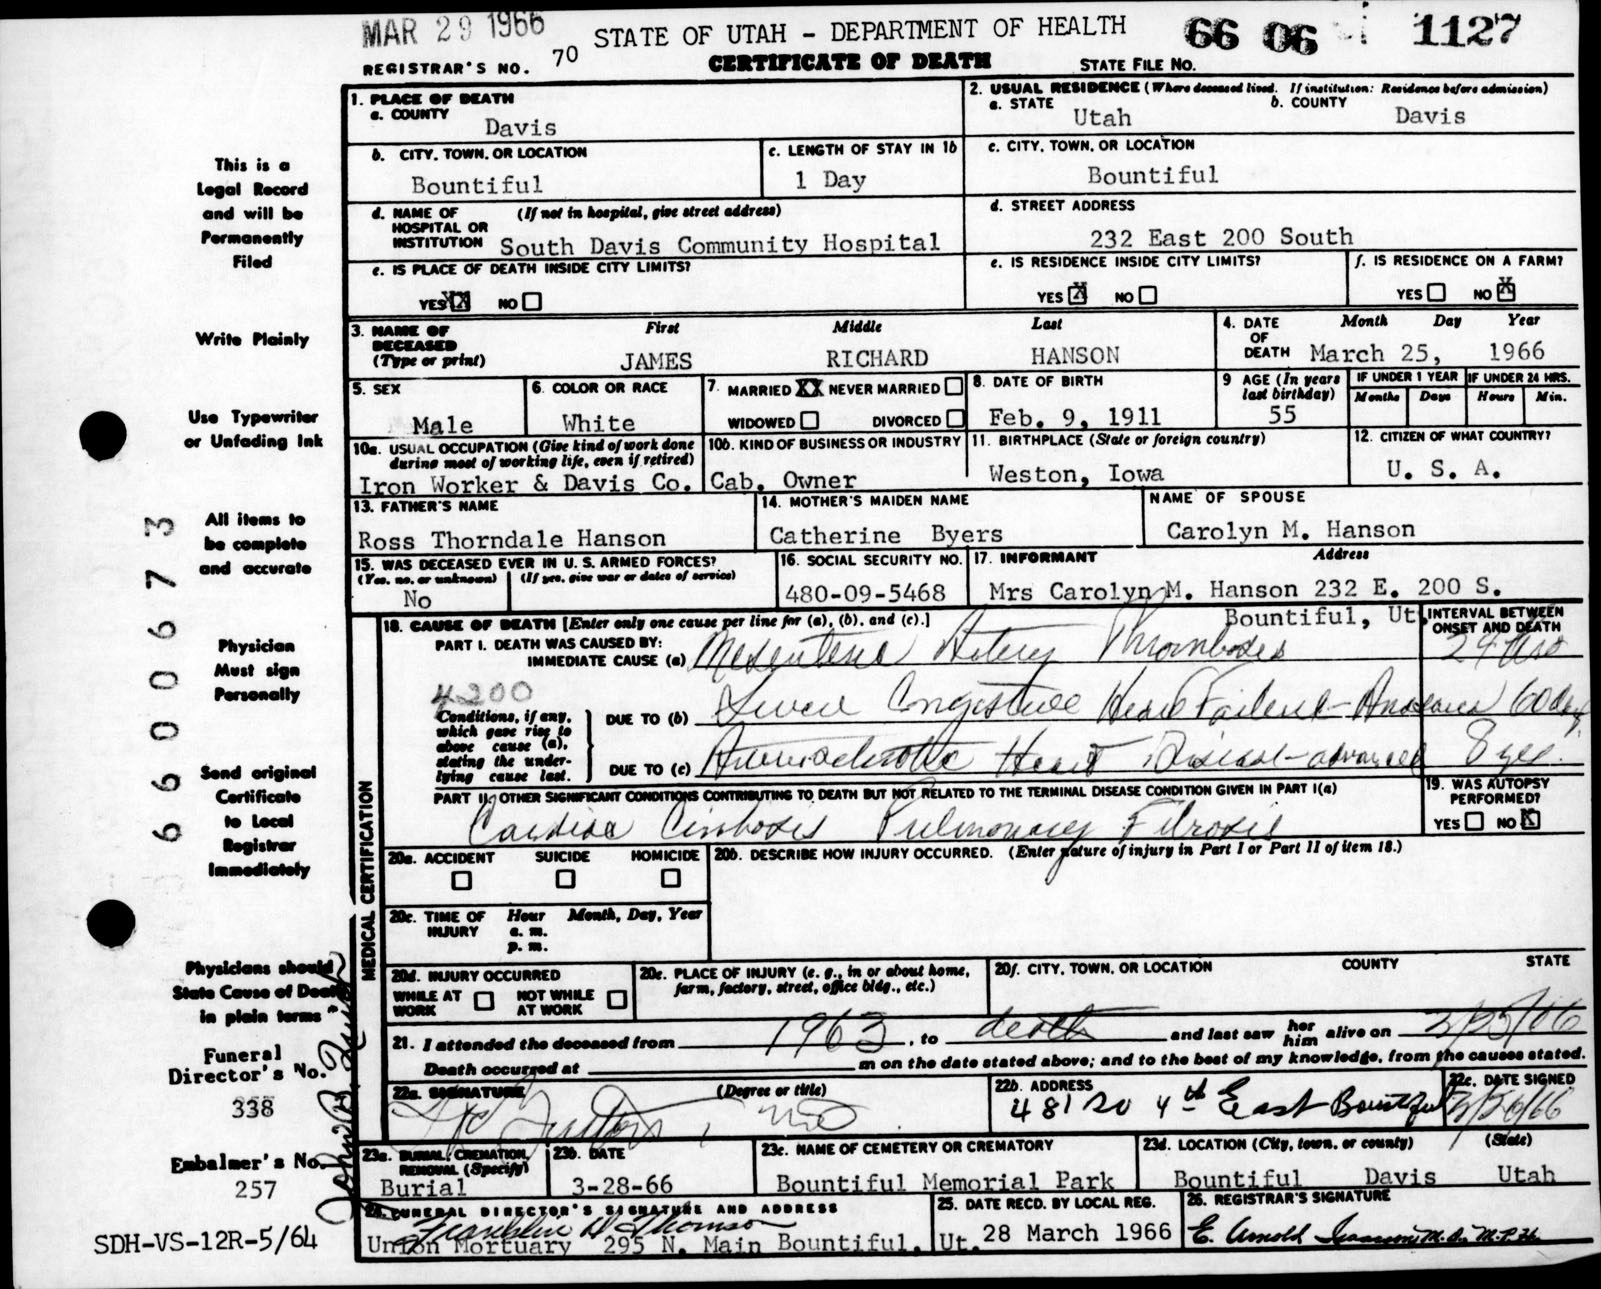 MAR 29 1966
STATE OF UTAH - DEPARTMENT OF HEALTH
66 06 1127
REGISTRAR'S NO. 70
CERTIFICATE OF DEATH
STATE FILE NO.
This is a
Legal Record
and will be
Permanently
Filed
Write Plainly
Use Typewriter
or Unfading Ink
All items to
be complete
and accurate
Physician
Must sign
Personally
Send original
Certificate
to Local
Registrar
Immediately
Physicians should
State Cause of Death
in plain terms
Funeral
Director's No.
338
Embalmer's No.
257
SDH-VS-12R-5/64
6600673
1. PLACE OF DEATH
a. COUNTY
Davis
2. USUAL RESIDENCE (Where deceased lived. If institution: Residence before admission)
a. STATE
Utah
b. COUNTY
Davis
b. CITY, TOWN, OR LOCATION
Bountiful
c. LENGTH OF STAY IN 1b
1 Day
c. CITY, TOWN, OR LOCATION
Bountiful
d. NAME OF HOSPITAL OR INSTITUTION
(If not in hospital, give street address)
South Davis Community Hospital
d. STREET ADDRESS
232 East 200 South
e. IS PLACE OF DEATH INSIDE CITY LIMITS?
YES XX NO
e. IS RESIDENCE INSIDE CITY LIMITS?
YES X NO
f. IS RESIDENCE ON A FARM?
YES NO X
3. NAME OF DECEASED
(Type or print)
First Middle Last
JAMES RICHARD HANSON
4. DATE OF DEATH
Month Day Year
March 25, 1966
5. SEX
Male
6. COLOR OR RACE
White
7. MARRIED XX NEVER MARRIED
WIDOWED DIVORCED
8. DATE OF BIRTH
Feb. 9, 1911
9 AGE (In years last birthday)
55
IF UNDER 1 YEAR
Months Days
IF UNDER 24 HRS.
Hours Min.
10a. USUAL OCCUPATION (Give kind of work done
during most of working life, even if retired)
Iron Worker & Davis Co.
10b. KIND OF BUSINESS OR INDUSTRY
Cab. Owner
11. BIRTHPLACE (State or foreign country)
Weston, Iowa
12. CITIZEN OF WHAT COUNTRY?
U. S. A.
13. FATHER'S NAME
Ross Thorndale Hanson
14. MOTHER'S MAIDEN NAME
Catherine Byers
NAME OF SPOUSE
Carolyn M. Hanson
15. WAS DECEASED EVER IN U. S. ARMED FORCES?
(Yes, no, or unknown) (If yes, give war or dates of service)
No
16. SOCIAL SECURITY NO.
480-09-5468
17. INFORMANT Address
Mrs Carolyn M. Hanson 232 E. 200 S.
Bountiful, Ut.
MEDICAL CERTIFICATION
18. CAUSE OF DEATH [Enter only one cause per line for (a), (b), and (c).]
INTERVAL BETWEEN
ONSET AND DEATH
PART I. DEATH WAS CAUSED BY:
IMMEDIATE CAUSE (a) Mesenteric Artery Thrombosis 24 hrs
4200
Conditions, if any,
which gave rise to
above cause (a),
stating the under-
lying cause last.
DUE TO (b) Severe Congestive Heart Failure - Anasarca 60 days
DUE TO (c) Arteriosclerotic Heart Disease - advanced 8 yrs.
PART II. OTHER SIGNIFICANT CONDITIONS CONTRIBUTING TO DEATH BUT NOT RELATED TO THE TERMINAL DISEASE CONDITION GIVEN IN PART I(a)
Cardiac Cirrhosis Pulmonary Fibrosis
19. WAS AUTOPSY
PERFORMED?
YES NO X
20a. ACCIDENT SUICIDE HOMICIDE
20b. DESCRIBE HOW INJURY OCCURRED. (Enter nature of injury in Part I or Part II of item 18.)
20c. TIME OF INJURY
Hour Month, Day, Year
a. m.
p. m.
20d. INJURY OCCURRED
WHILE AT WORK NOT WHILE AT WORK
20e. PLACE OF INJURY (e. g., in or about home,
farm, factory, street, office bldg., etc.)
20f. CITY, TOWN, OR LOCATION COUNTY STATE
21. I attended the deceased from 1963, to death and last saw her him alive on 3/25/66
Death occurred at m on the date stated above; and to the best of my knowledge, from the causes stated.
22a. SIGNATURE (Degree or title)
MD
22b. ADDRESS
481 So 4th East Bountiful
22c. DATE SIGNED
3/26/66
23a. BURIAL, CREMATION,
REMOVAL (Specify)
Burial
23b. DATE
3-28-66
23c. NAME OF CEMETERY OR CREMATORY
Bountiful Memorial Park
23d. LOCATION (City, town, or county) (State)
Bountiful Davis Utah
24. FUNERAL DIRECTOR'S SIGNATURE AND ADDRESS
Franklin D Thomson
Union Mortuary 295 N. Main Bountiful, Ut.
25. DATE RECD. BY LOCAL REG.
28 March 1966
26. REGISTRAR'S SIGNATURE
E. Arnold Isaacson M.D., M.P.H.